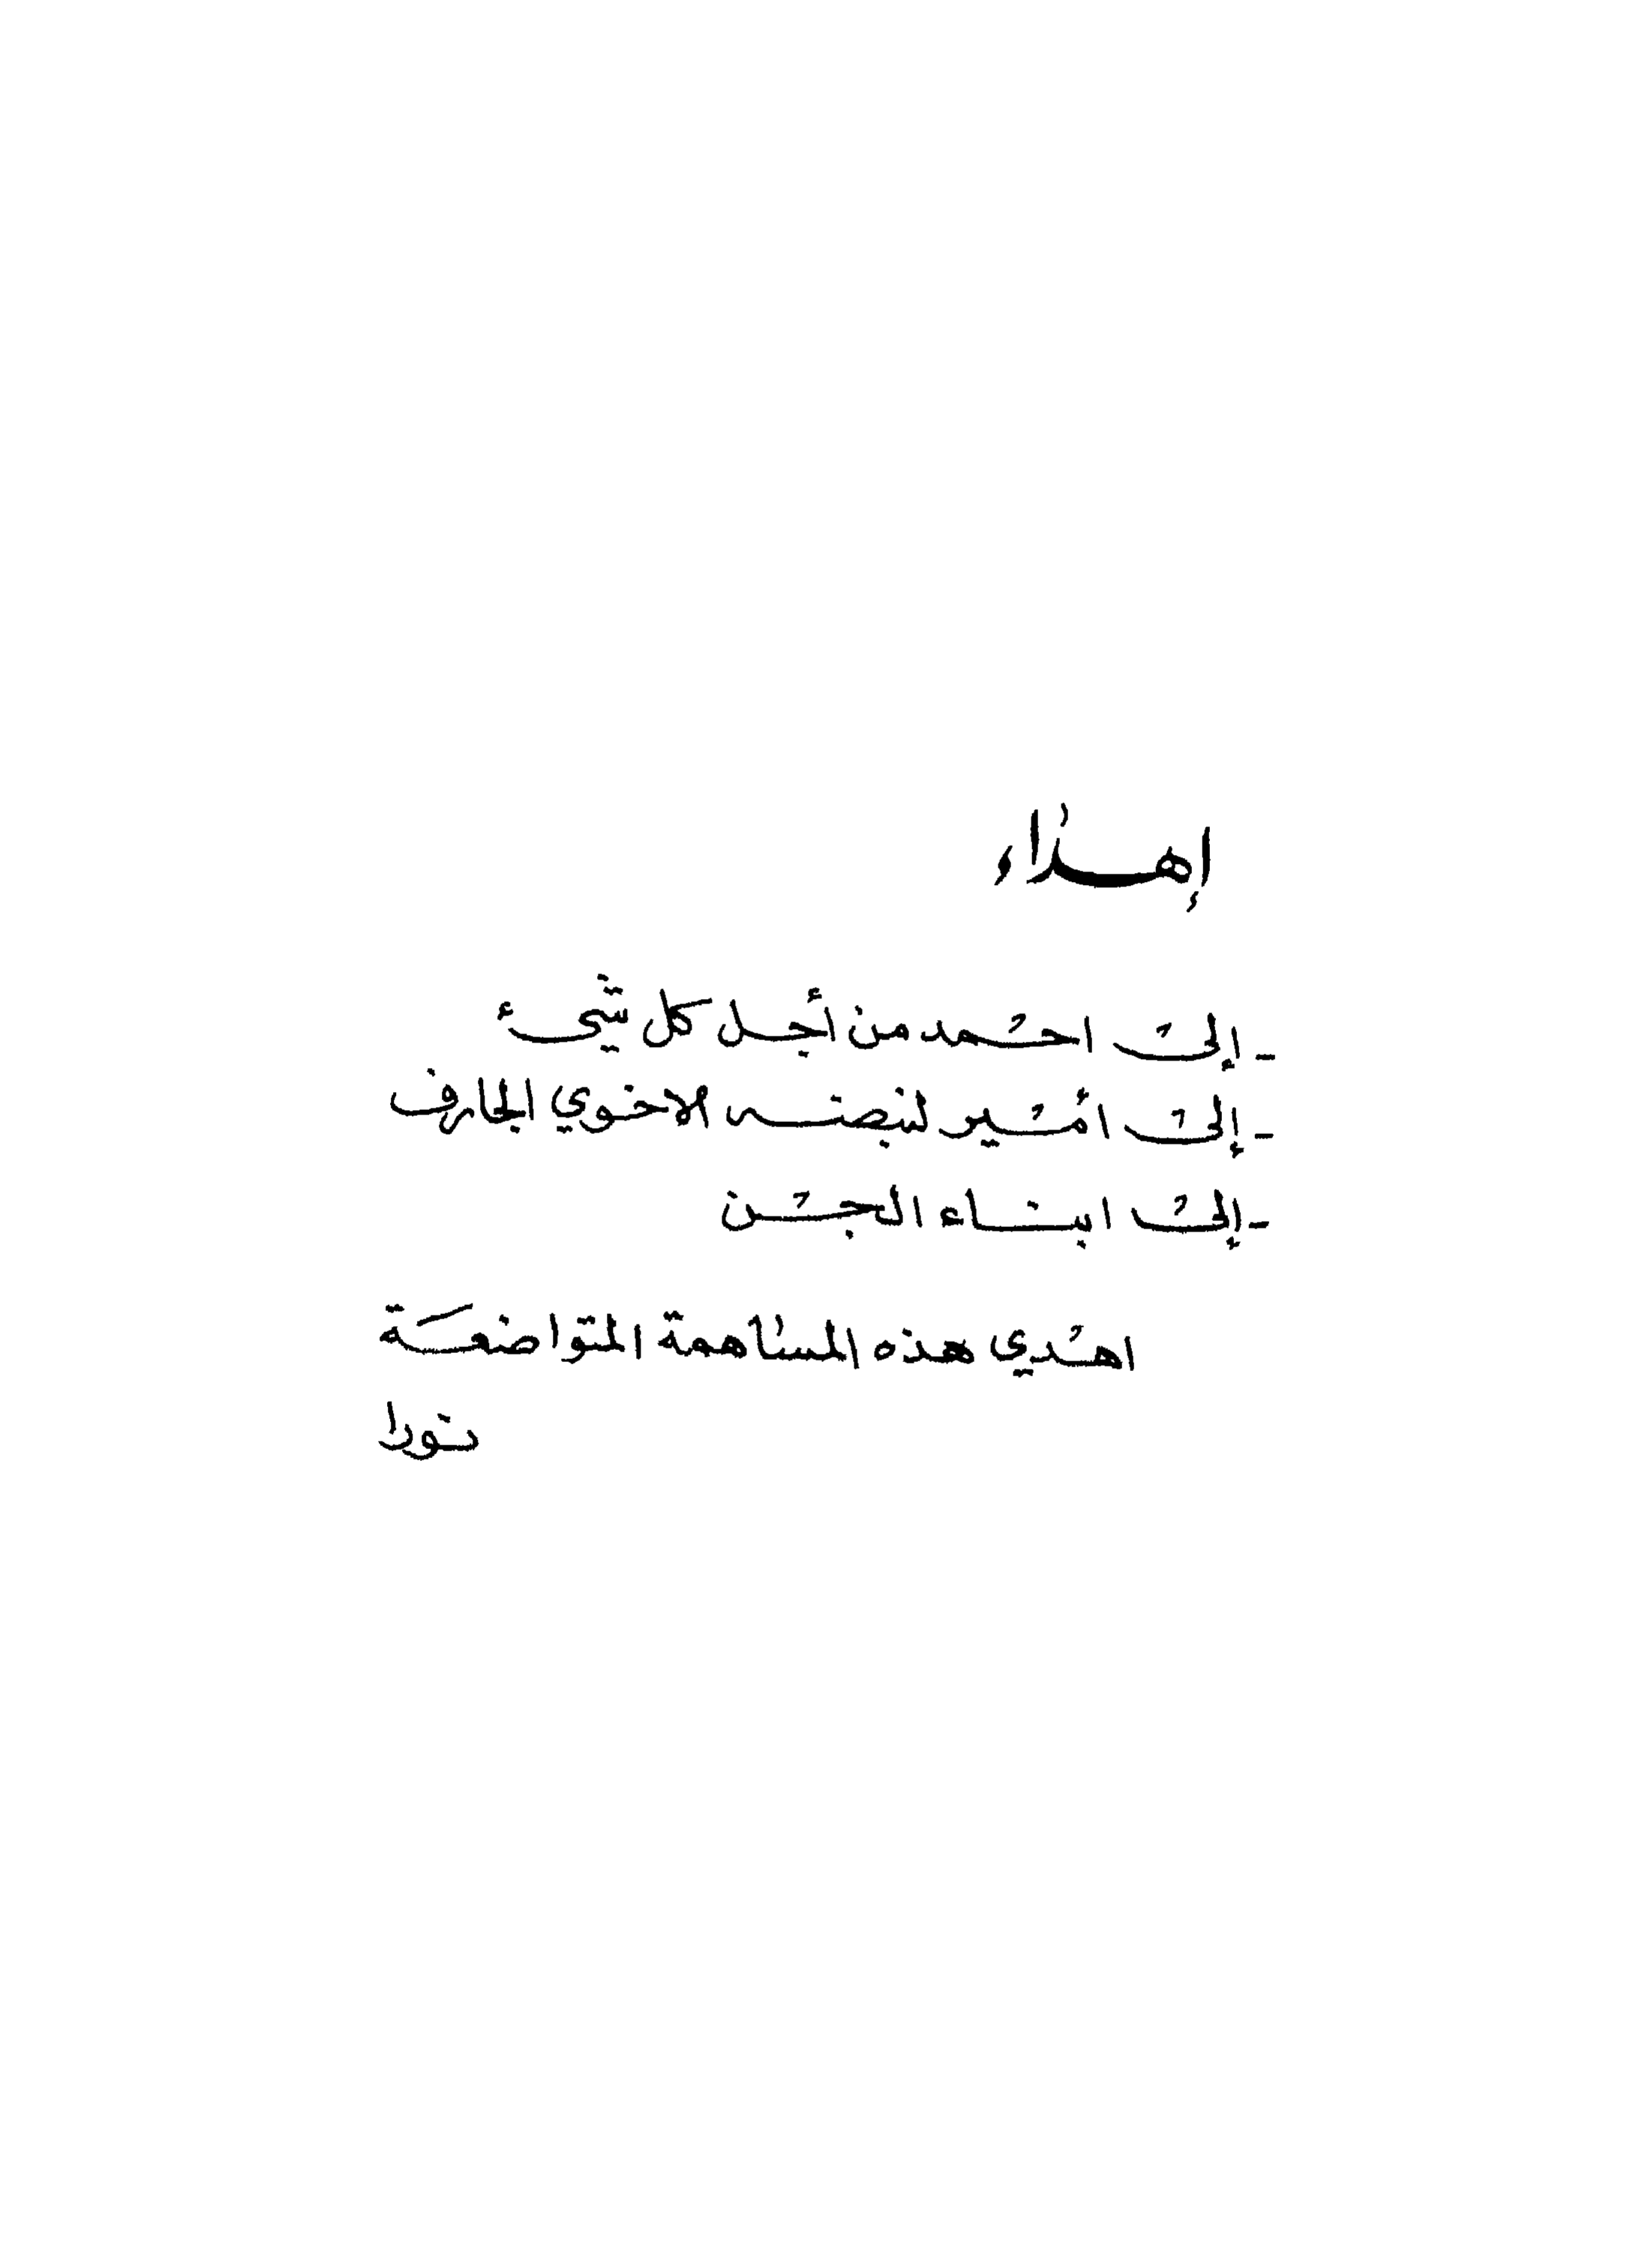 إهداء
- إلى احمد من أجل كل شيء
- إلى امير لنبضه الاخوي الجارف
- إلى ابناء الجن
اهدي هذه المساهمة المتواضعة
نورا